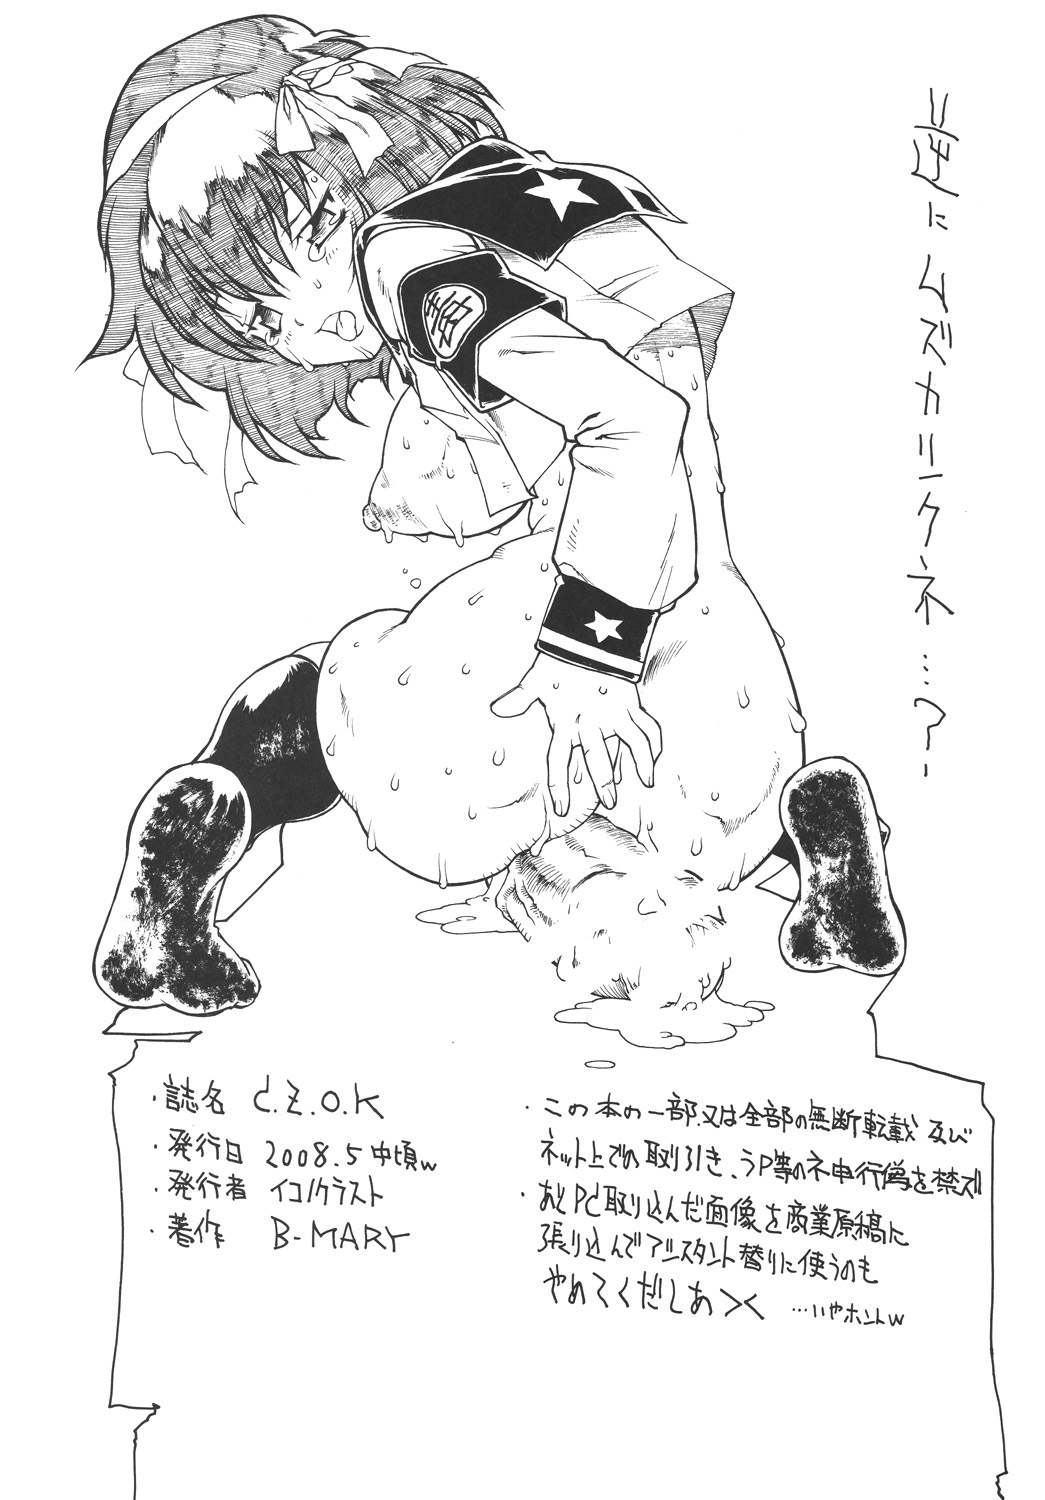 逆にムズカシクネ…?
・誌名 C.Z.O.K
・発行日 2008.5中頃w
・発行者 イコノクラスト
・著作 B-MARY
・この本の一部、又は全部の無断転載 及び
ネット上での取り引き、うP等のネ申行為を禁ズ
・あとPCに取り込んだ面像を商業原稿に
張り込んでアシスタント替りに使うのも
やめてくだしあ><  …いやホントw